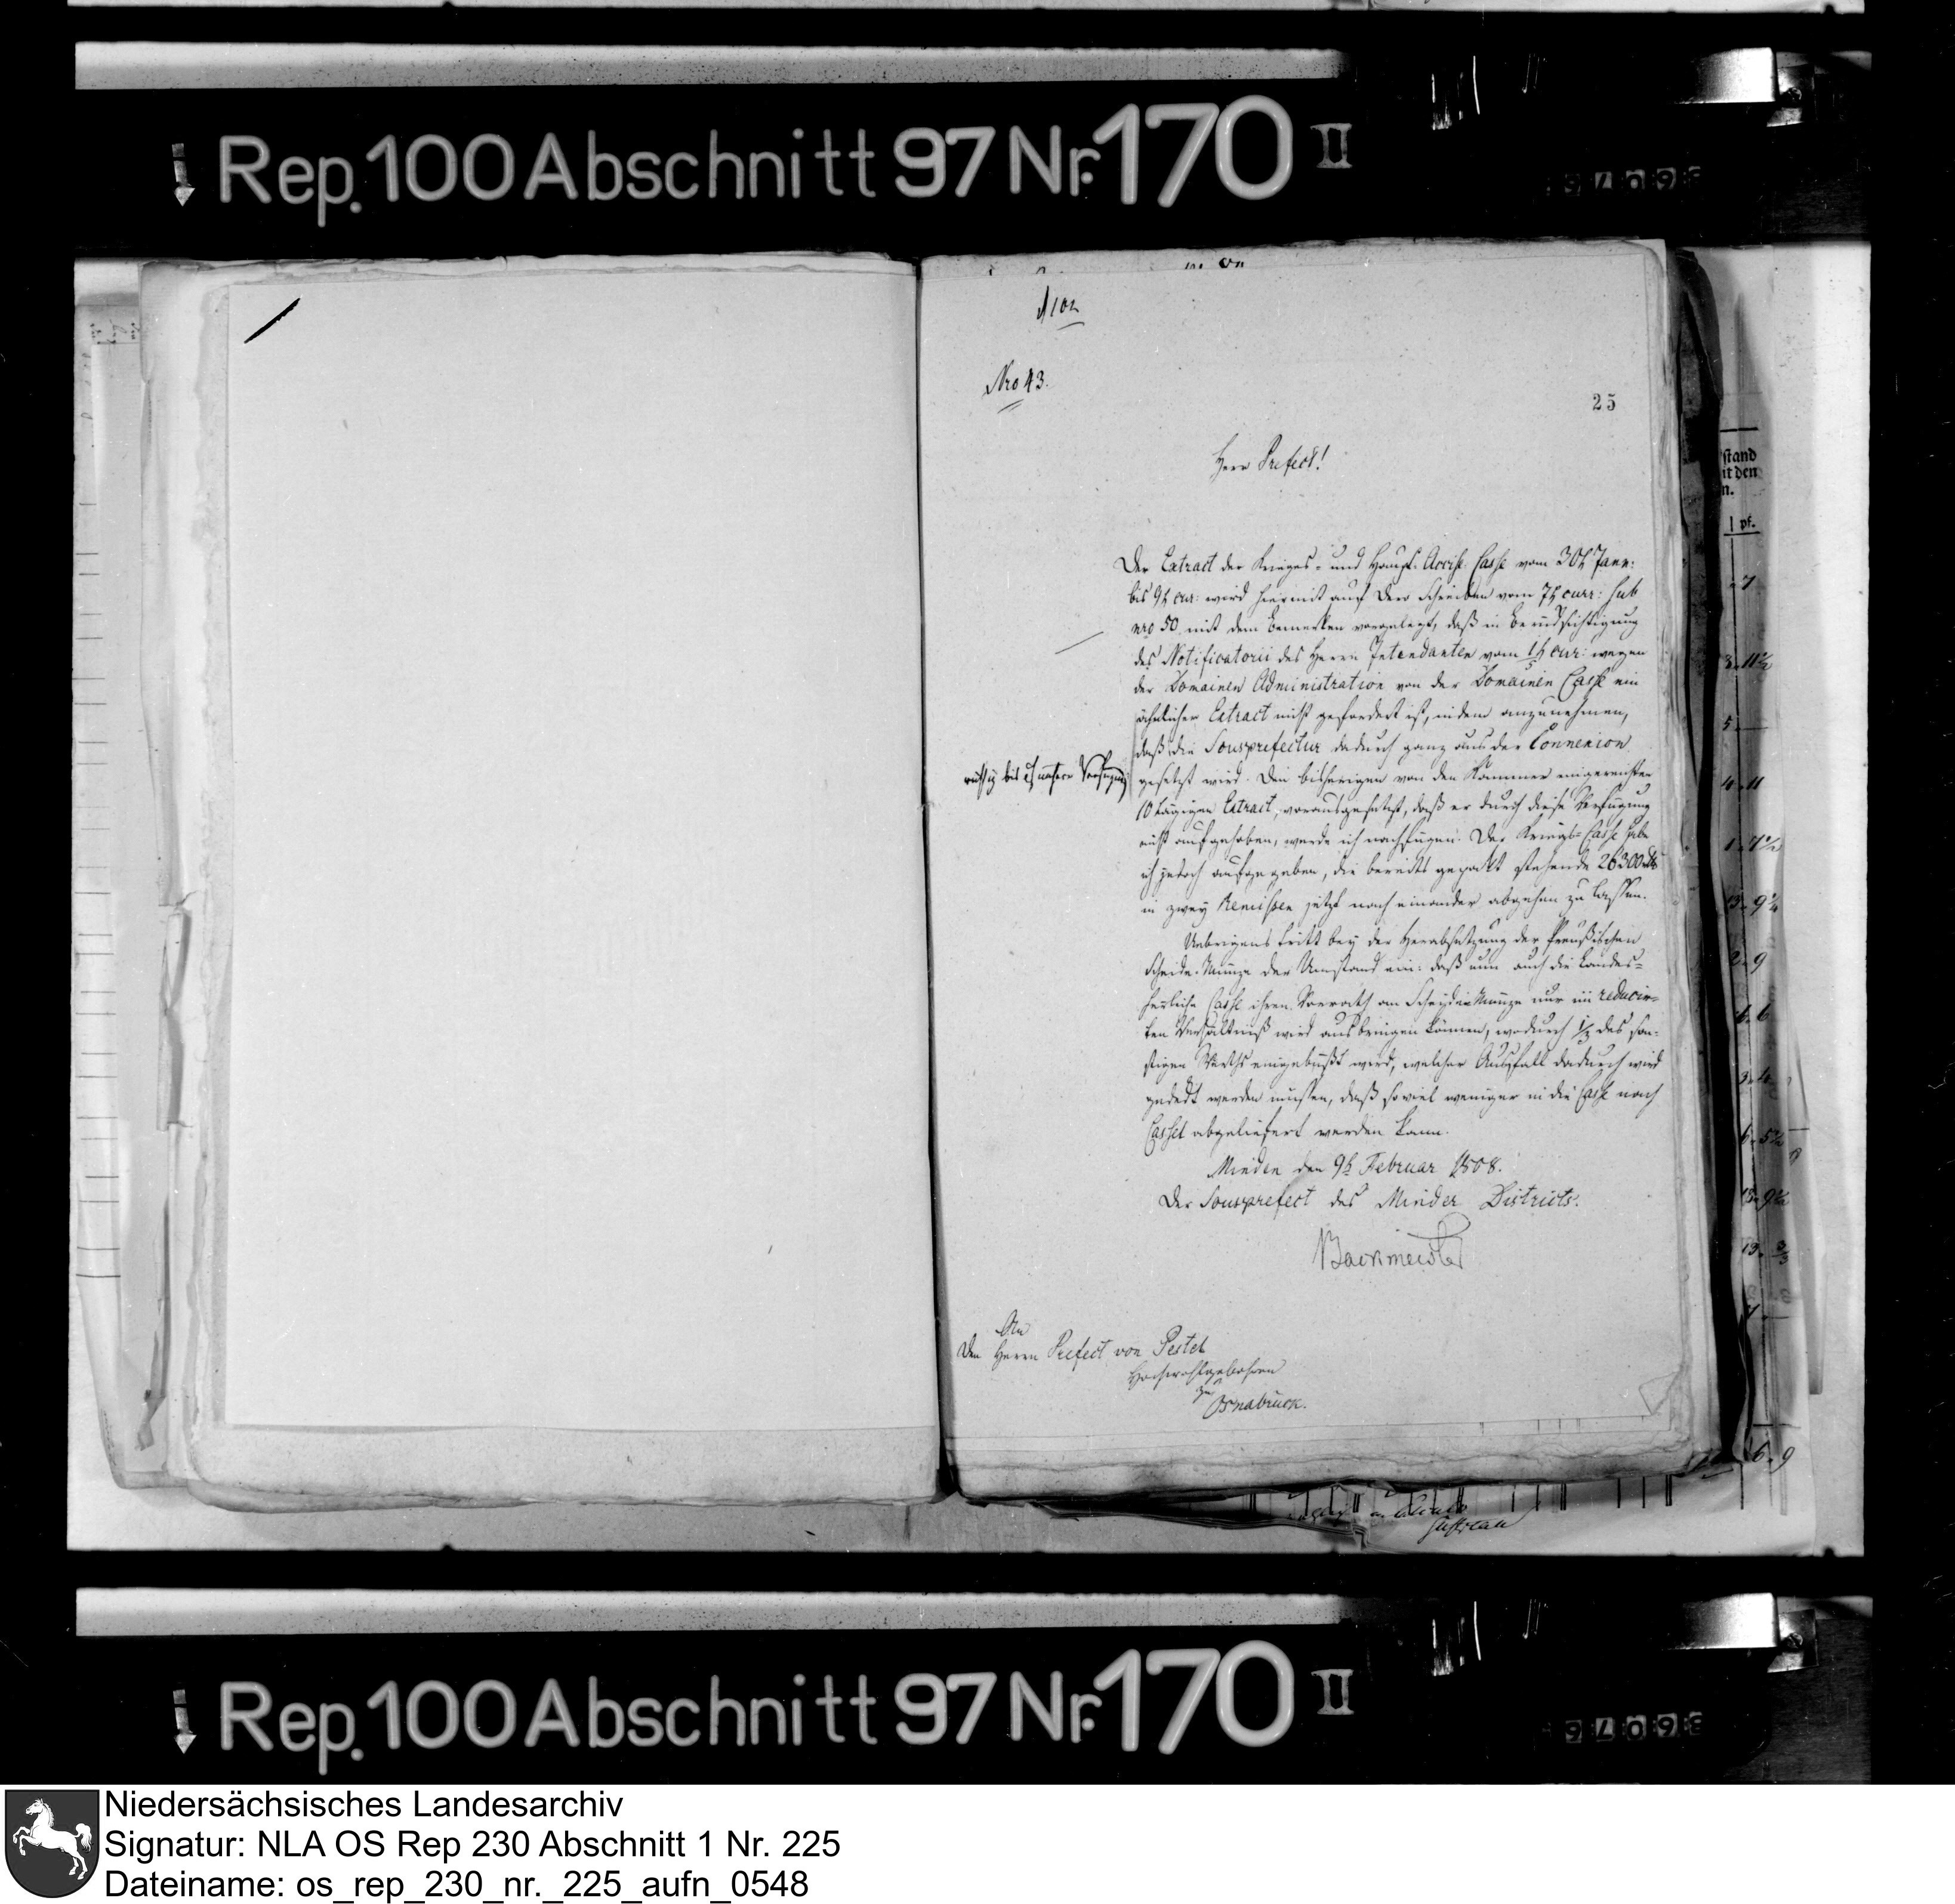 Rep. 100 Abschnitt 97 Nr. 170 II
Nro 43.
25
Herr Prefect!
Der Extract der Krieges- und Haupt-Accise-Casse vom 30t Janr:
bis 9t cur: wird hiermit auf Dero Schreiben vom 7t curr: sub
nro 50 mit dem Bemerken vorgelegt, daß in Berücksichtigung
des Notificatorii des Herrn Intendanten vom cur: wegen
der Domainen Administration von der Domainen Casse ein
ähnlicher Extract nicht gefordert ist, indem anzunehmen,
daß die Sousprefectur dadurch ganz aus der Connexion
gesetzt wird. Die bisherigen von den Kammer eingereichten
10 tägigen Extract, vorausgesetzt, daß er durch diese Verfügung
nicht aufgehoben, werde ich nachfügen. Der Kriegs-Casse habe
ich jedoch aufgegeben, die bereits gepakt stehende 26300
in zwey Remissen jetzt nach einander abgehen zu lassen.
Uebrigens tritt bey der Herabsetzung der Preußischen
Scheide-Münze der Umstand ein: daß nun auch die Landes-
herrliche Casse ihren Vorrath an Scheide Münze nur im reducir-
ten Verhältniß wird ausbringen können, wodurch 1/3 des son-
stigen Werths eingebüßt wird, welcher Ausfall dadurch wird
gedekt werden müssen, daß soviel weniger in die Casse nach
Cassel abgeliefert werden kann.
Minden den 9t Februar 1808.
Der Sousprefect des Minder Districts.
Backmeister
An
den Herrn Prefect von Pestel
Hochwohlgebohren
zu
Osnabrück.
stand
it den
n.
pf.
Rep. 100 Abschnitt 97 Nr. 170 II
Niedersächsisches Landesarchiv
Signatur: NLA OS Rep 230 Abschnitt 1 Nr. 225
Dateiname: os_rep_230_nr._225_aufn_0548